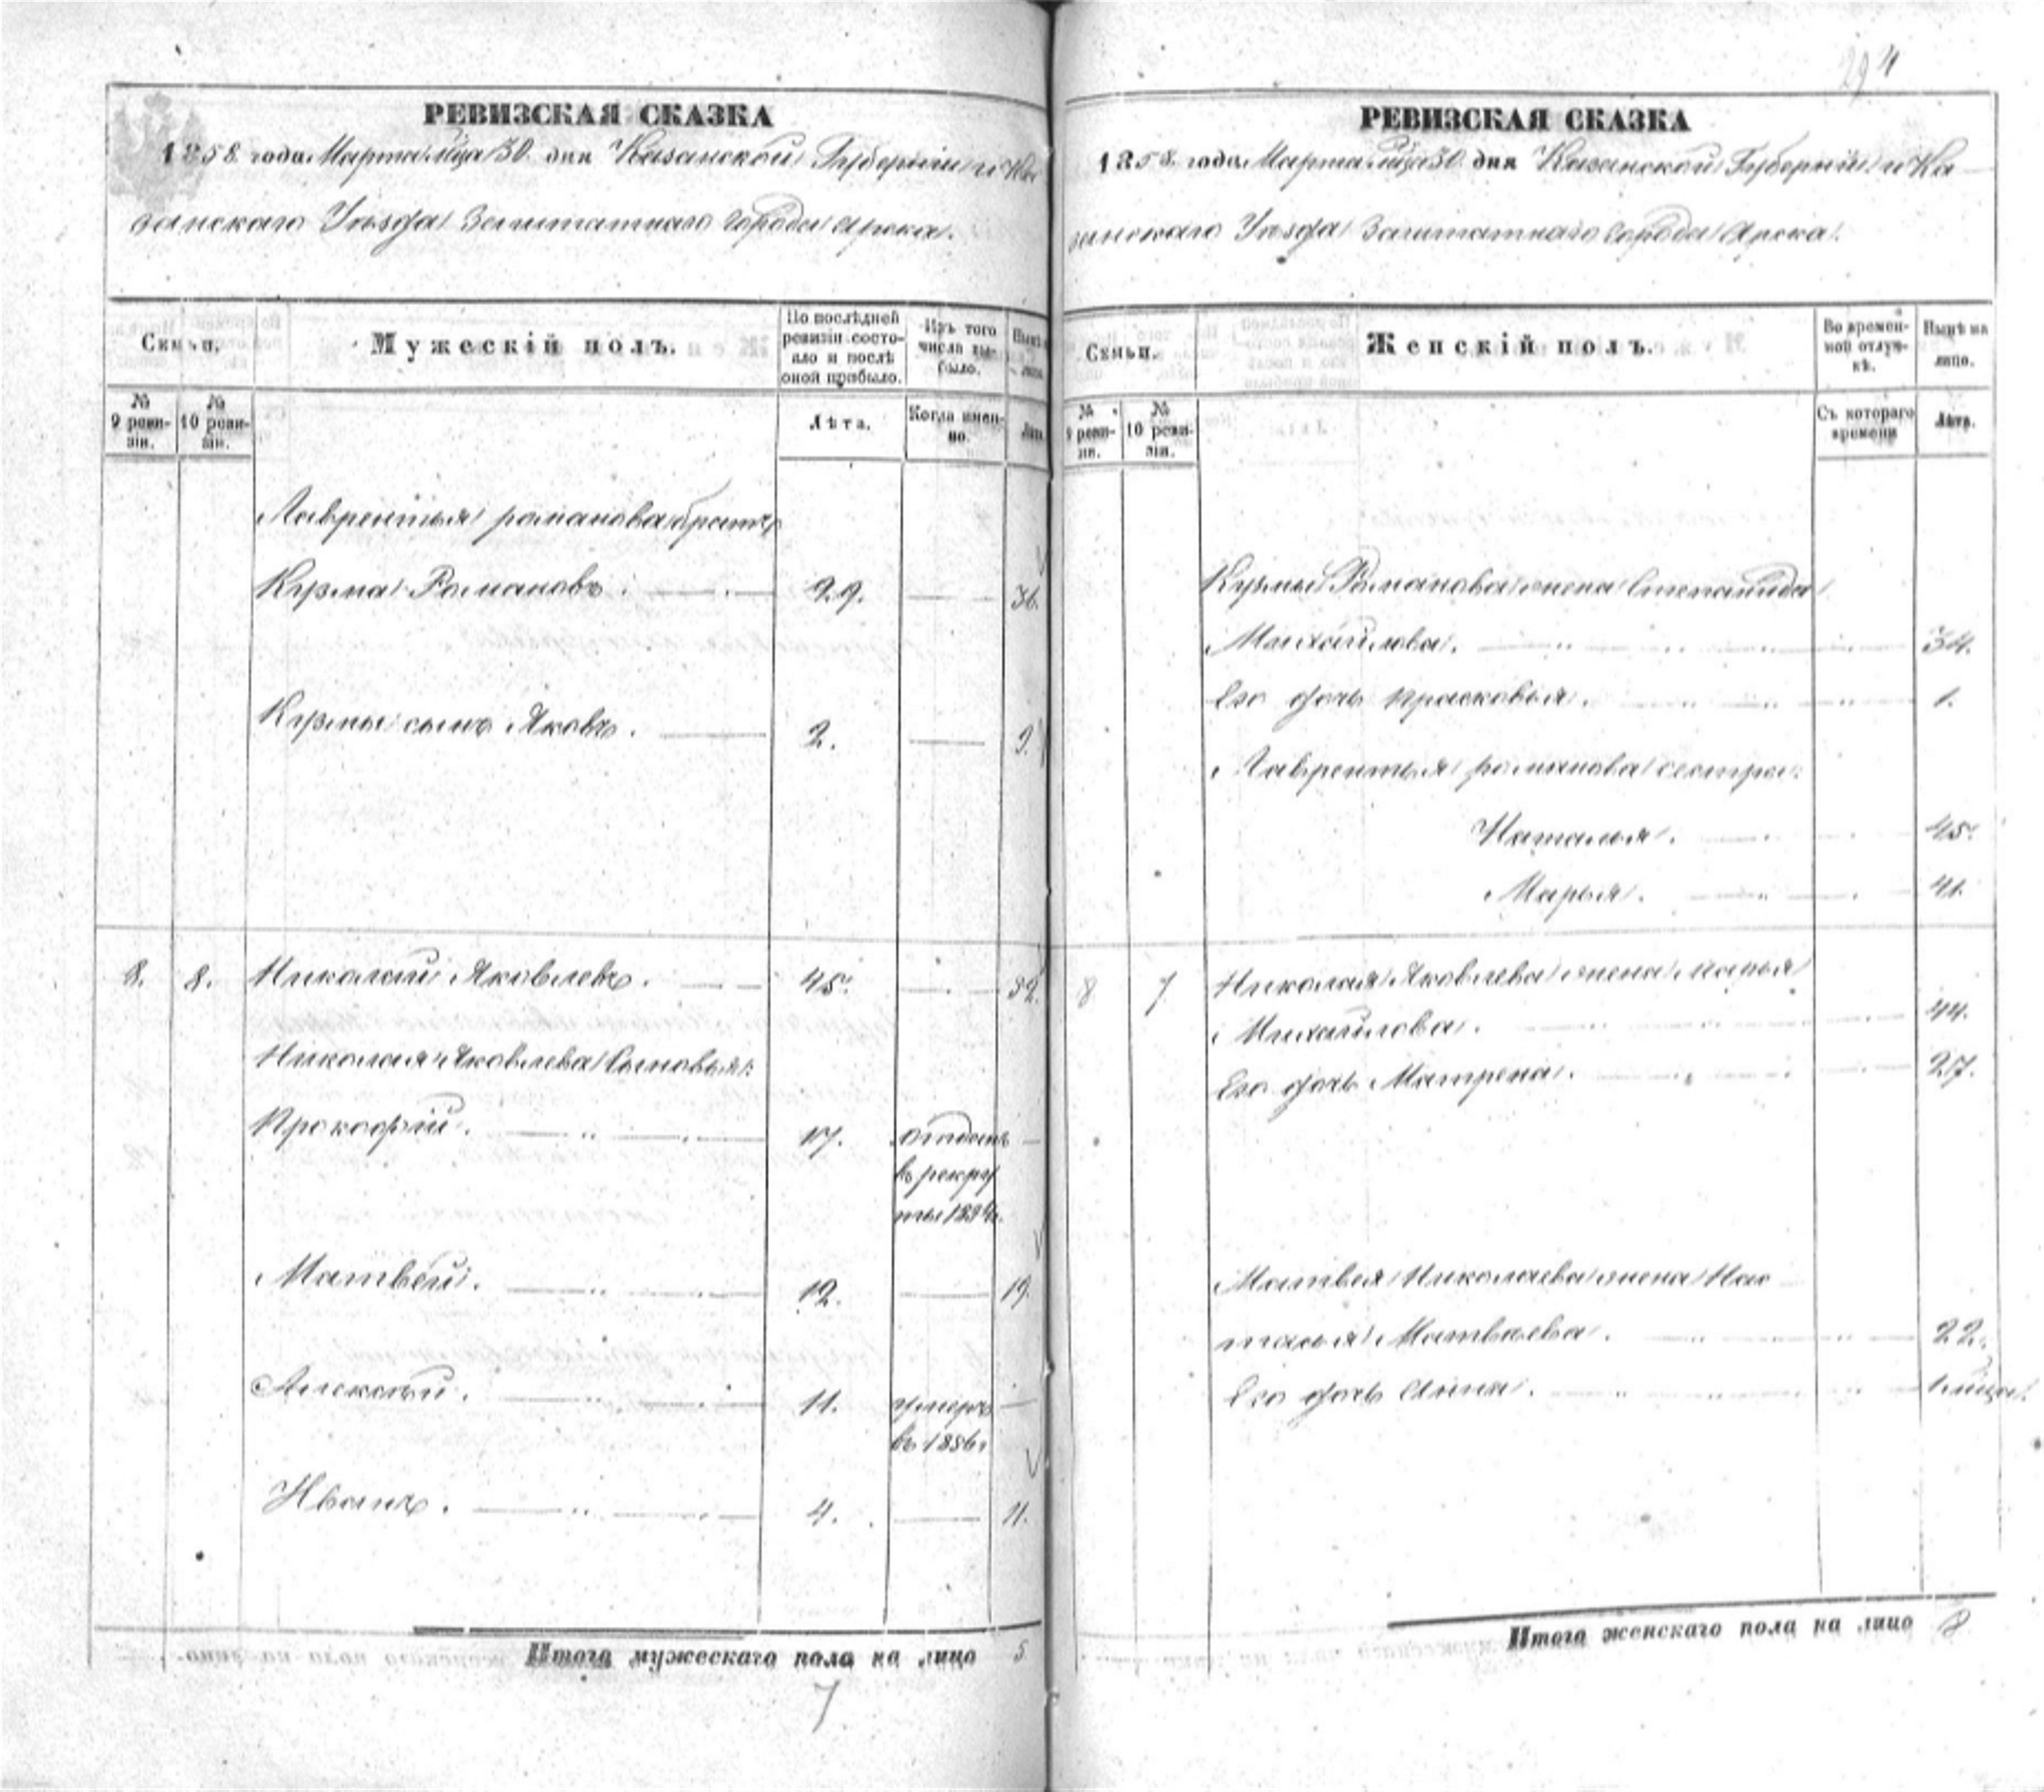 294
РЕВИЗСКАЯ СКАЗКА
1858 года Марта м͠ца 30 дня Казанской Губерніи и Ка
занскаго Уѣзда Заштатнаго города Арска.
Семьи.
Мужескій полъ.
По послѣдней ревизіи состояло и послѣ оной прибыло.
Изъ того числа выбыло.
№ 9 ревизіи.
№ 10 ревизіи.
Лѣта.
Когда именно.
Лѣта.
Лаврентья Романова братъ
Кузма Романовъ. 29. 36.
Кузмы сынъ Яковъ. 2. 9.
8. 8. Николай Яковлевъ. 45. 52.
Николая Яковлева сыновья:
Прокофій. 17. отданъ
въ рекру
ты 1854г.
Матвей. 12. 19.
Алексѣй. 11. умеръ
въ 1856г.
Иванъ. 4. 11.
Итого мужескаго пола на лицо 5
7
РЕВИЗСКАЯ СКАЗКА
1858 года Марта м͠ца 30 дня Казанской Губерніи и Ка
занскаго Уѣзда Заштатнаго города Арска.
Семьи.
Женскій полъ.
Во временной отлучкѣ.
Нынѣ на лицо.
№ 9 ревизіи.
№ 10 ревизіи.
Съ котораго времени
Лѣта.
Кузмы Романова жена Степанида
Михайлова. 34.
Его дочь Прасковья. 1.
Лаврентья Романова сестра:
Наталья. 45.
Марья. 41.
8 7 Николая Яковлева жена Марья
Михайлова. 44.
Его дочь Матрена. 27.
Матвея Николаева жена На
талья Матвѣева. 22.
Его дочь Анна. 1 мѣца.
Итого женскаго пола на лицо 8